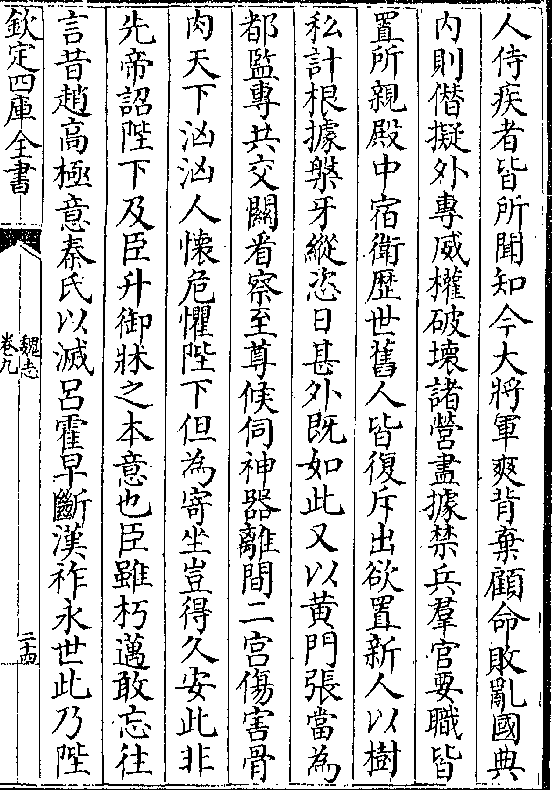 人侍疾者皆所聞知今大將軍爽背棄顧命敗亂國典
内則僭擬外專威權破壞諸營盡據禁兵羣官要職皆
置所親殿中宿衛歷世舊人皆復斥出欲置新人以樹
私計根據槃牙縱恣日甚外既如此又以黄門張當為
都監專共交關看察至尊候伺神器離間二宫傷害骨
肉天下洶洶人懷危懼陛下但為寄坐豈得久安此非
先帝詔陛下及臣升御牀之本意也臣雖朽邁敢忘往
言昔趙高極意秦氏以滅吕霍早斷漢祚永世此乃陛
欽定四庫全書
魏志
卷九
二十四